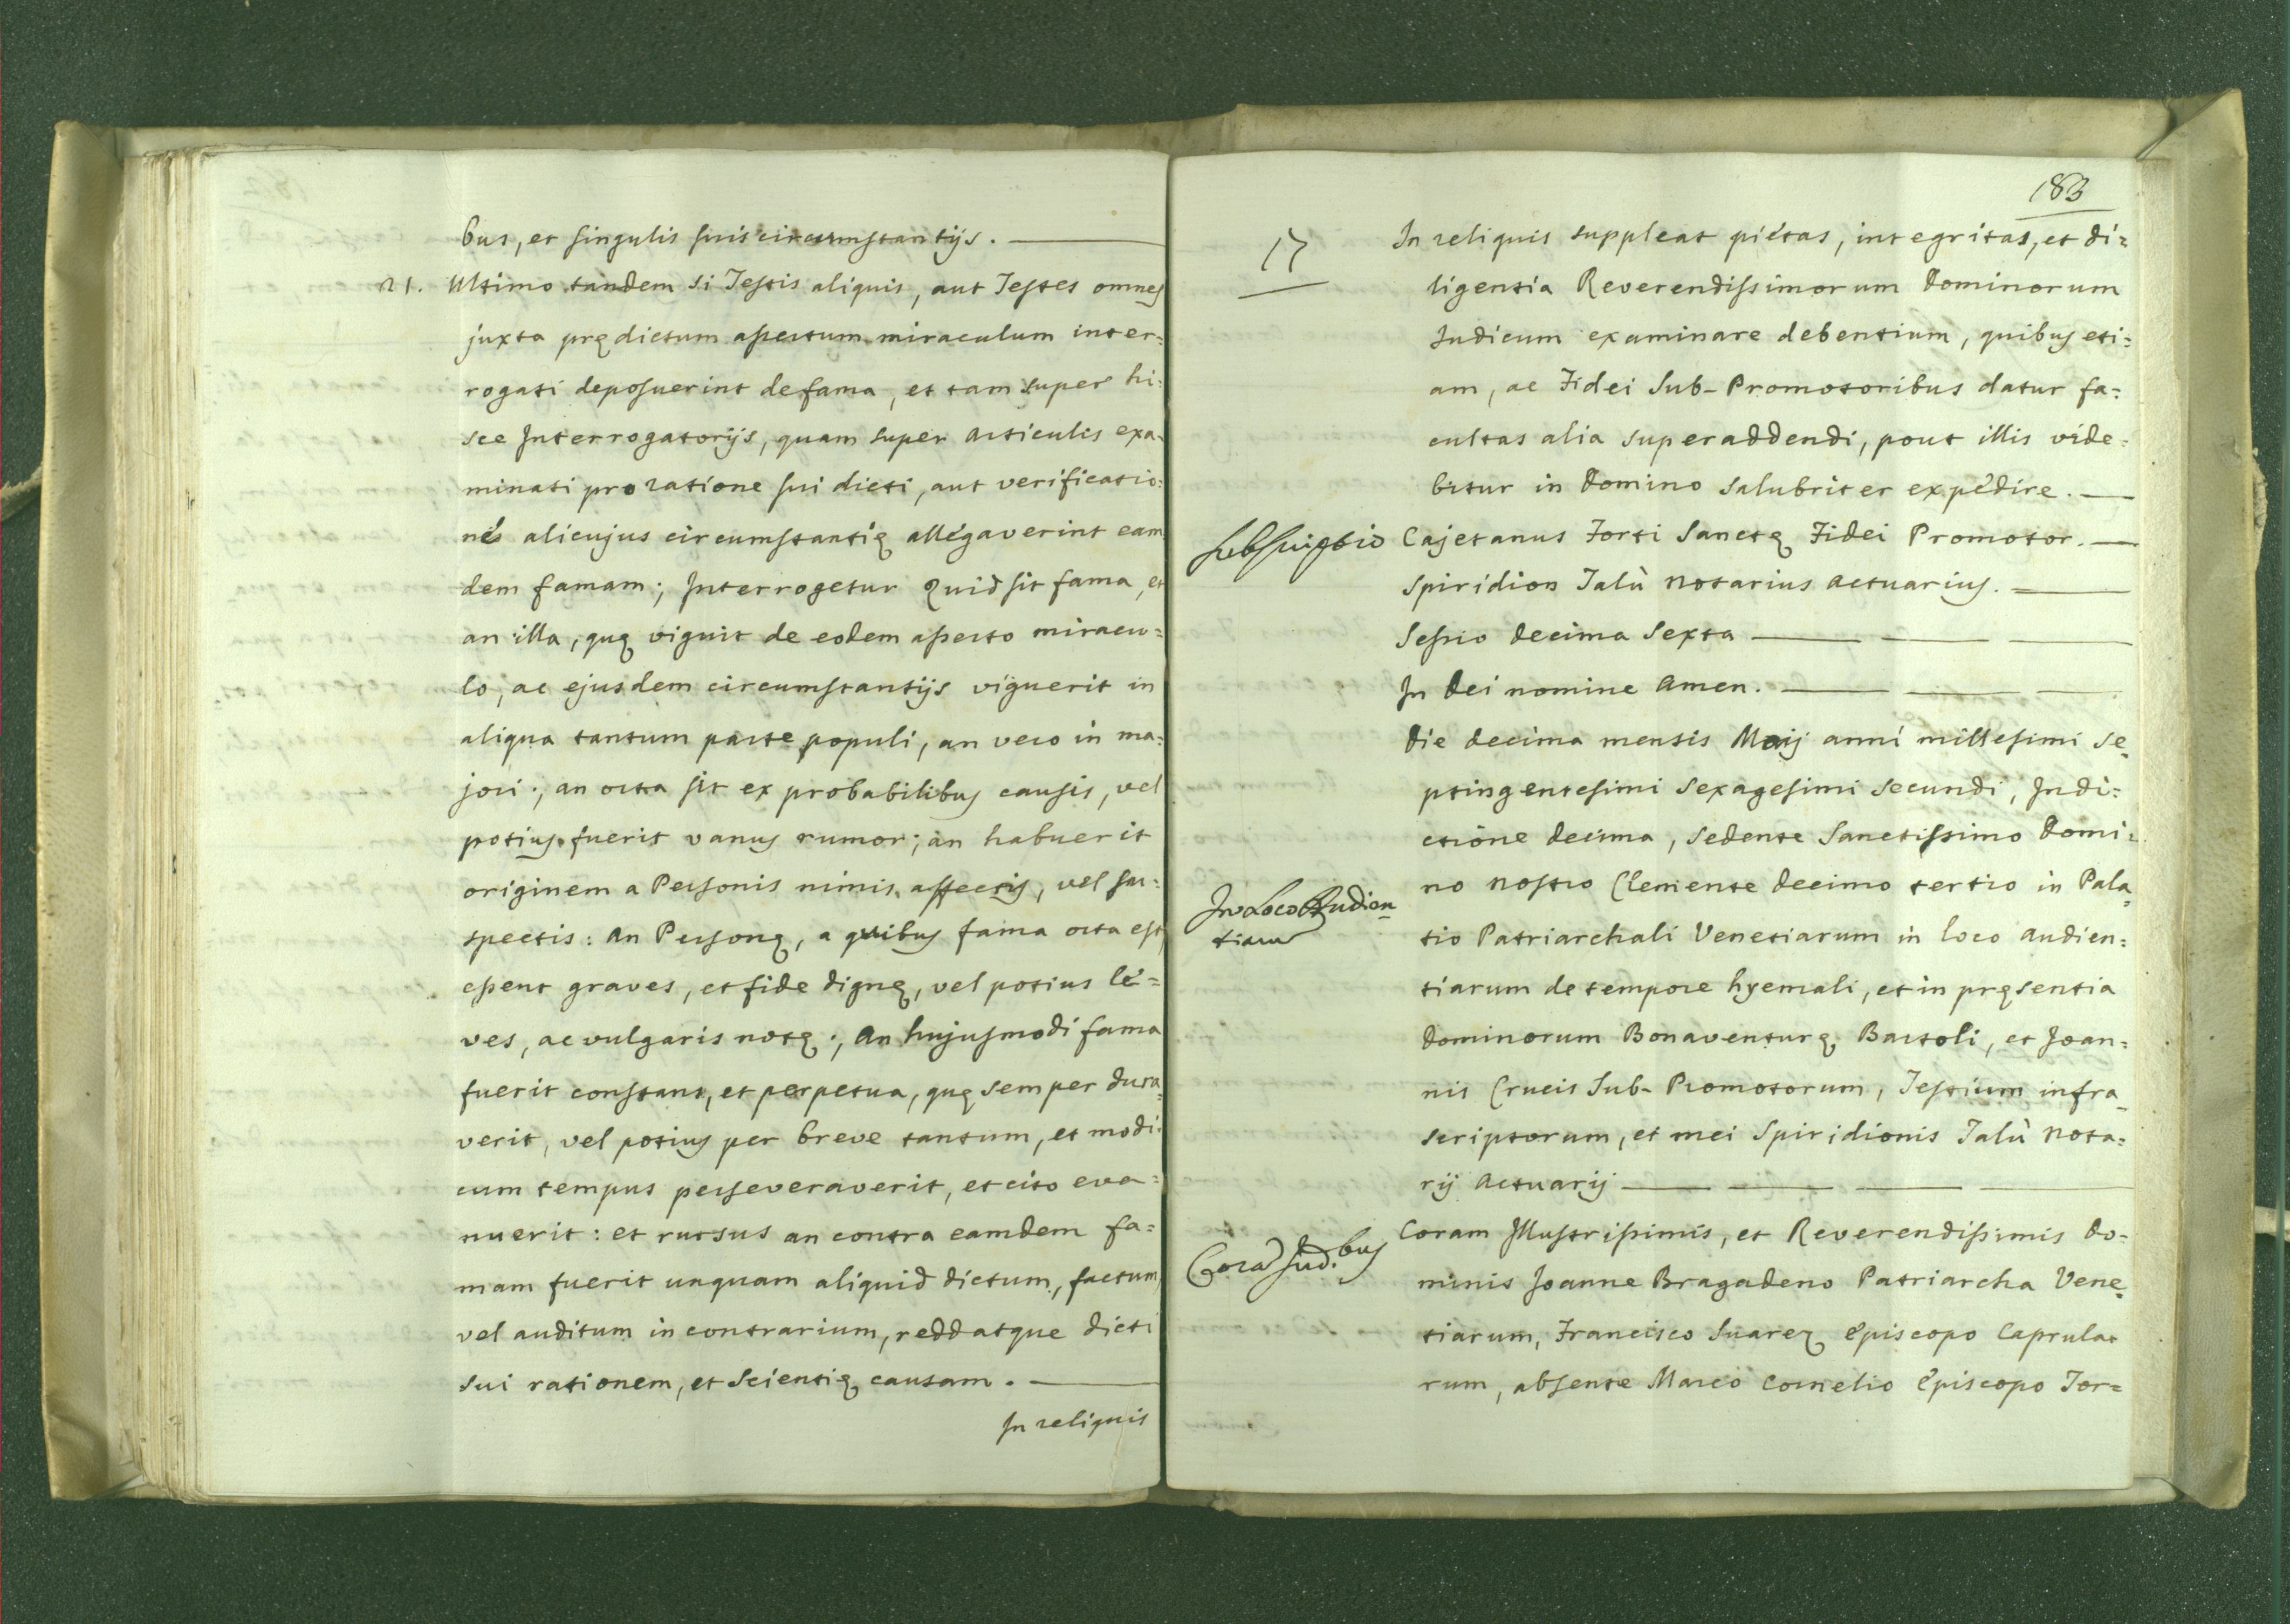 bus, et singulis suis circumstantijs.
21. Ultimo tandem si Testis aliquis, aut Testes omnes
juxta prędictum assertum miraculum inter=
rogati deposuerint de fama, et tam super hi=
sce Interrogatorijs, quam super Articulis exa=
minati pro ratione sui dicti, aut verificatio=
nes alicujus circumstantię allegaverint eam
dem famam; Interrogetur Quid sit fama, et
an illa, quę viguit de eodem asserto miracu=
lo, ac ejusdem circumstantijs viguerit in
aliqua tantum parte populi, an vero in ma=
jori; an orta sit ex probabilibus causis, vel
potius fuerit vanus rumor; an habuerit
originem a Personis nimis affectis, vel su=
spectis: An Personę, a quibus fama orta est
essent graves, et fide dignę, vel potius le=
ves, ac vulgaris notę; An hujusmodi fama
fuerit constans, et perpetua, quę semper dura=
verit, vel potius per breve tantum, et modi=
cum tempus perseveraverit, et cito eva=
nuerit: et rursus an contra eamdem fa=
mam fuerit unquam aliquid dictum, factum,
vel auditum in contrarium, reddatque dicti
sui rationem, et scientię causam.
In reliquis
183
17
In reliquis suppleat pietas, integritas, et di=
ligentia Reverendissimorum Dominorum
Judicum examinare debentium, quibus eti=
am, ac Fidei Sub-Promotoribus datur fa=
cultas alia superaddendi, pout illis vide=
bitur in Domino salubriter expedire.
Subscriptio
Cajetanus Forti Sanctę Fidei Promotor.
Spiridion Talù Notarius Actuarius.
Sessio decima Sexta
In Dei nomine Amen.
Die decima mensis Maij anni millesimi Se=
ptingentesimi Sexagesimi secundi, Indi=
ctione decima, Sedente Sanctissimo Domi=
no Nostro Clemente Decimo tertio in Pala=
In Loco Audien=
tiarum
tio Patriarchali Venetiarum in loco Audien=
tiarum de tempore hyemali, et in pręsentia
Dominorum Bonaventurę Bartoli, et Joan=
nis Crucis Sub-Promotorum, Testium infra=
scriptorum, et mei Spiridionis Talù Nota=
rij Actuarij
Corã Jud.bus
Coram Illustrissimis, et Reverendissimis Do=
minis Joanne Bragadeno Patriarcha Vene=
tiarum, Francisco Suarez Episcopo Caprula=
rum, absente Marco Cornelio Episcopo Tor=